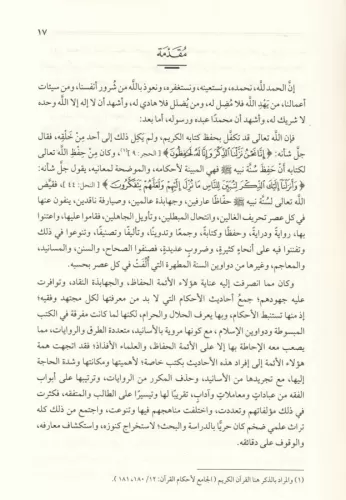 ١٧
مُقَدِّمَة
إنَّ الحمد للَّه، نحمده، ونستعينه، ونستغفره، ونعوذ باللَّه من شُرور أنفسنا، ومن سيئات
أعمالنا، من يَهْدِ اللَّه فلا مُضِل له، ومن يُضلل فلا هادي له، وأشهد أن لا إله إلا اللَّه وحده
لا شريك له، وأشهد أن محمدًا عبده ورسوله، أما بعد:
فإن اللَّه تعالى قد تكفَّل بحفظ كتابه الكريم، ولم يَكِل ذلك إلى أحد مِنْ خَلْقِه، فقال
جلَّ شأنه: ﴿إِنَّا نَحْنُ نَزَّلْنَا ٱلذِّكْرَ وَإِنَّا لَهُۥ لَحَٰفِظُونَ﴾ [الحجر: ٩](١)، وكان مِنْ حِفْظِ اللَّه تعالى
لكتابه أنْ حَفِظَ سُنَّة نبيه ﷺ فهي المبينة لأحكامه، والموضحة لمعانيه، يقول جلَّ شأنه:
﴿وَأَنزَلْنَآ إِلَيْكَ ٱلذِّكْرَ لِتُبَيِّنَ لِلنَّاسِ مَا نُزِّلَ إِلَيْهِمْ وَلَعَلَّهُمْ يَتَفَكَّرُونَ﴾ [النحل: ٤٤]، فقيَّض
اللَّه تعالى لسُنَّة نبيه ﷺ حفَّاظًا عارفين، وجهابذة عالمين، وصيارفة ناقدين، ينفون عنها
في كل عصر تحريف الغالين، وانتحال المبطلين، وتأويل الجاهلين، فقاموا عليها، واعتنوا
بها، رواية ودراية، وحفظًا وكتابةً، وجمعًا وتدوينًا، وتأليفًا وتصنيفًا، وتنوعوا في ذلك
وتفننوا فيه على أنحاءٍ كثيرةٍ، وضروبٍ عديدةٍ، فصنفوا الصحاح، والسنن، والمسانيد،
والمعاجم، وغيرها من دواوين السنة المطهرة التي أُلِّفَتْ في كل عصر بحسبه.
وكان مما انصرفت إليه عناية هؤلاء الأئمة الحفاظ، والجهابذة النقاد، وتوافرت
عليه جهودهم؛ جمعُ أحاديث الأحكام التي لا بد من معرفتها لكل مجتهد وفقيه؛
إذ منها تستنبط الأحكام، وبها يعرف الحلال والحرام، لكنها لما كانت مفرقة في الكتب
المبسوطة ودواوين الإسلام، مع كونها مروية بالأسانيد، متعددة الطرق والروايات، مما
يصعب معه الإحاطة بها إلا على الأئمة الحفاظ، والعلماء الأفذاذ؛ فقد اتجهت همة
هؤلاء الأئمة إلى إفراد هذه الأحاديث بكتب خاصة؛ لأهميتها ومكانتها وشدة الحاجة
إليها، مع تجريدها من الأسانيد، وحذف المكرر من الروايات، وترتيبها على أبواب
الفقه من عبادات ومعاملات وآداب، تقريبًا لها وتيسيرًا على الطالب والمتفقه، فكثرت
في ذلك مؤلفاتهم وتعددت، واختلفت مناهجهم فيها وتنوعت، واجتمع من ذلك كله
تراث علمي ضخم كان حريًّا بالدراسة والبحث؛ لاستخراج كنوزه، واستكشاف معارفه،
والوقوف على دقائقه.
(١) والمراد بالذكر هنا القرآن الكريم (الجامع لأحكام القرآن: ١٢/ ١٨٠، ١٨١).